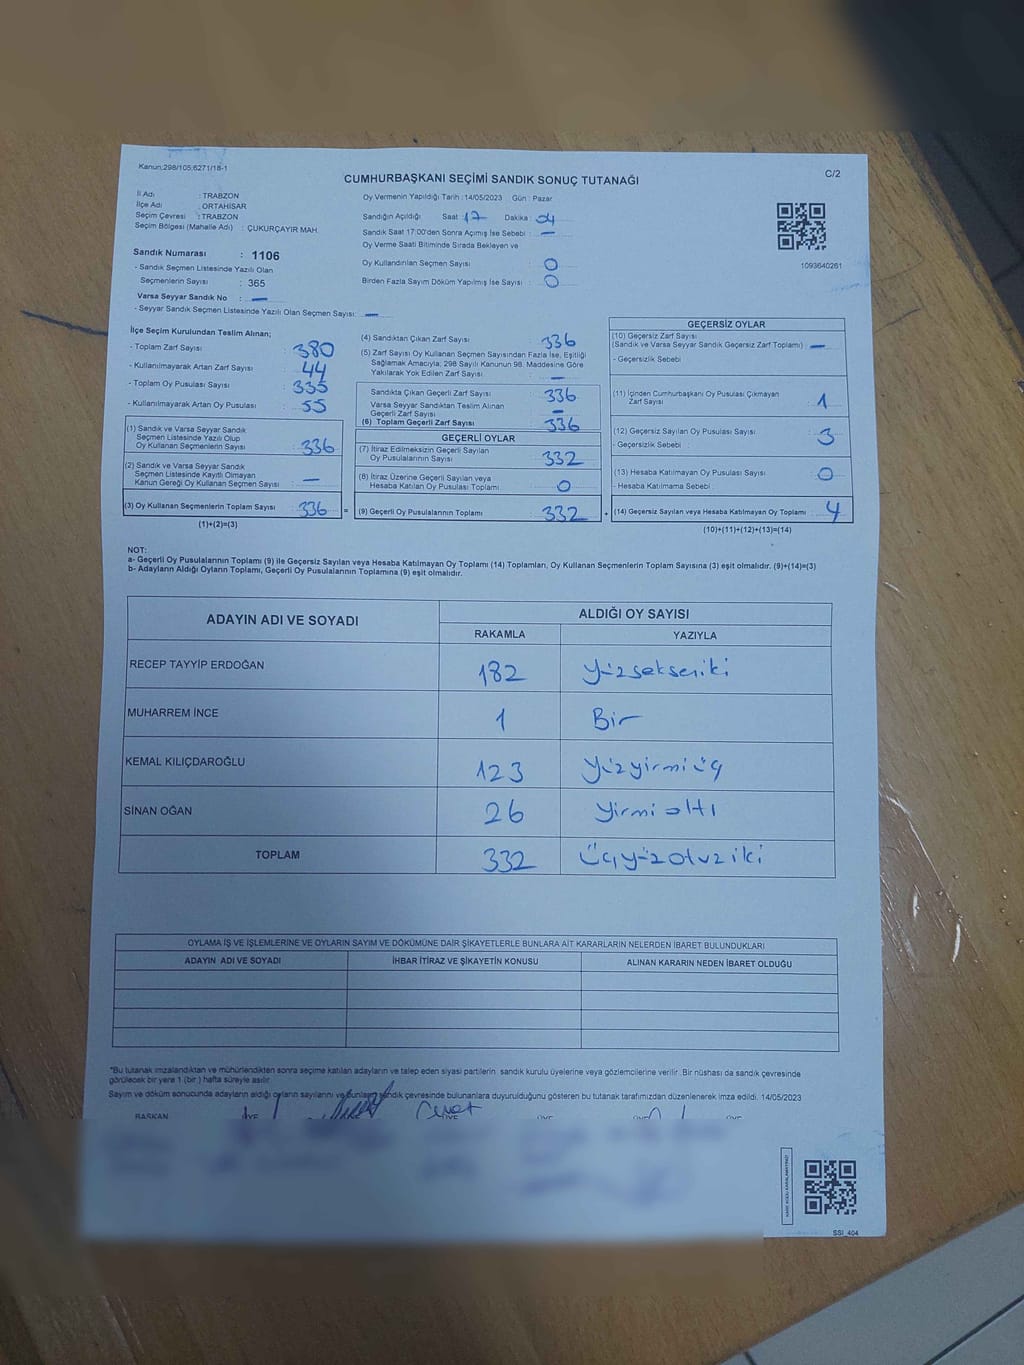 Kanun:298/105;6271/18-1
C/2
CUMHURBAŞKANI SEÇİMİ SANDIK SONUÇ TUTANAĞI
İl Adı : TRABZON
İlçe Adı : ORTAHİSAR
Seçim Çevresi : TRABZON
Seçim Bölgesi (Mahalle Adı) : ÇUKURÇAYIR MAH.
Oy Vermenin Yapıldığı Tarih :14/05/2023 Gün : Pazar
Sandığın Açıldığı Saat 17 Dakika : 04
Sandık Saat 17:00'den Sonra Açılmış İse Sebebi : —
Oy Verme Saati Bitiminde Sırada Bekleyen ve
Oy Kullandırılan Seçmen Sayısı 0
Birden Fazla Sayım Döküm Yapılmış İse Sayısı : 0
1093640261
Sandık Numarası : 1106
- Sandık Seçmen Listesinde Yazılı Olan
Seçmenlerin Sayısı : 365
Varsa Seyyar Sandık No : —
- Seyyar Sandık Seçmen Listesinde Yazılı Olan Seçmen Sayısı: —
İlçe Seçim Kurulundan Teslim Alınan;
- Toplam Zarf Sayısı : 380
- Kullanılmayarak Artan Zarf Sayısı : 44
- Toplam Oy Pusulası Sayısı : 335
- Kullanılmayarak Artan Oy Pusulası : 55
(1) Sandık ve Varsa Seyyar Sandık
Seçmen Listesinde Yazılı Olup
Oy Kullanan Seçmenlerin Sayısı : 336
(2) Sandık ve Varsa Seyyar Sandık
Seçmen Listesinde Kayıtlı Olmayan
Kanun Gereği Oy Kullanan Seçmen Sayısı : —
(3) Oy Kullanan Seçmenlerin Toplam Sayısı 336 =
(1)+(2)=(3)
(4) Sandıktan Çıkan Zarf Sayısı : 336
(5) Zarf Sayısı Oy Kullanan Seçmen Sayısından Fazla İse, Eşitliği
Sağlamak Amacıyla; 298 Sayılı Kanunun 98. Maddesine Göre
Yakılarak Yok Edilen Zarf Sayısı : —
Sandıkta Çıkan Geçerli Zarf Sayısı : 336
Varsa Seyyar Sandıktan Teslim Alınan
Geçerli Zarf Sayısı : —
(6) Toplam Geçerli Zarf Sayısı : 336
GEÇERLİ OYLAR
(7) İtiraz Edilmeksizin Geçerli Sayılan
Oy Pusulalarının Sayısı : 332
(8) İtiraz Üzerine Geçerli Sayılan veya
Hesaba Katılan Oy Pusulası Toplamı : 0
(9) Geçerli Oy Pusulalarının Toplamı : 332 +
GEÇERSİZ OYLAR
(10) Geçersiz Zarf Sayısı
(Sandık ve Varsa Seyyar Sandık Geçersiz Zarf Toplamı) : —
- Geçersizlik Sebebi :
(11) İçinden Cumhurbaşkanı Oy Pusulası Çıkmayan
Zarf Sayısı : 1
(12) Geçersiz Sayılan Oy Pusulası Sayısı : 3
- Geçersizlik Sebebi :
(13) Hesaba Katılmayan Oy Pusulası Sayısı : 0
- Hesaba Katılmama Sebebi :
(14) Geçersiz Sayılan veya Hesaba Katılmayan Oy Toplamı : 4
(10)+(11)+(12)+(13)=(14)
NOT:
a- Geçerli Oy Pusulalarının Toplamı (9) ile Geçersiz Sayılan veya Hesaba Katılmayan Oy Toplamı (14) Toplamları, Oy Kullanan Seçmenlerin Toplam Sayısına (3) eşit olmalıdır. (9)+(14)=(3)
b- Adayların Aldığı Oyların Toplamı, Geçerli Oy Pusulalarının Toplamına (9) eşit olmalıdır.
ADAYIN ADI VE SOYADI ALDIĞI OY SAYISI
RAKAMLA YAZIYLA
RECEP TAYYİP ERDOĞAN 182 Yüzsekseniki
MUHARREM İNCE 1 Bir
KEMAL KILIÇDAROĞLU 123 Yüzyirmiüç
SİNAN OĞAN 26 Yirmi altı
TOPLAM 332 Üçyüzotuz iki
OYLAMA İŞ VE İŞLEMLERİNE VE OYLARIN SAYIM VE DÖKÜMÜNE DAİR ŞİKAYETLERLE BUNLARA AİT KARARLARIN NELERDEN İBARET BULUNDUKLARI
ADAYIN ADI VE SOYADI İHBAR İTİRAZ VE ŞİKAYETİN KONUSU ALINAN KARARIN NEDEN İBARET OLDUĞU
*Bu tutanak imzalandıktan ve mühürlendikten sonra seçime katılan adayların ve talep eden siyasi partilerin, sandık kurulu üyelerine veya gözlemcilerine verilir. Bir nüshası da sandık çevresinde
görülecek bir yere 1 (bir) hafta süreyle asılır.
Sayım ve döküm sonucunda adayların aldığı oyların sayılarını ve bunların sandık çevresinde bulunanlara duyurulduğunu gösteren bu tutanak tarafımızdan düzenlenerek imza edildi. 14/05/2023
BAŞKAN ÜYE ÜYE ÜYE ÜYE ÜYE
SSİ_404